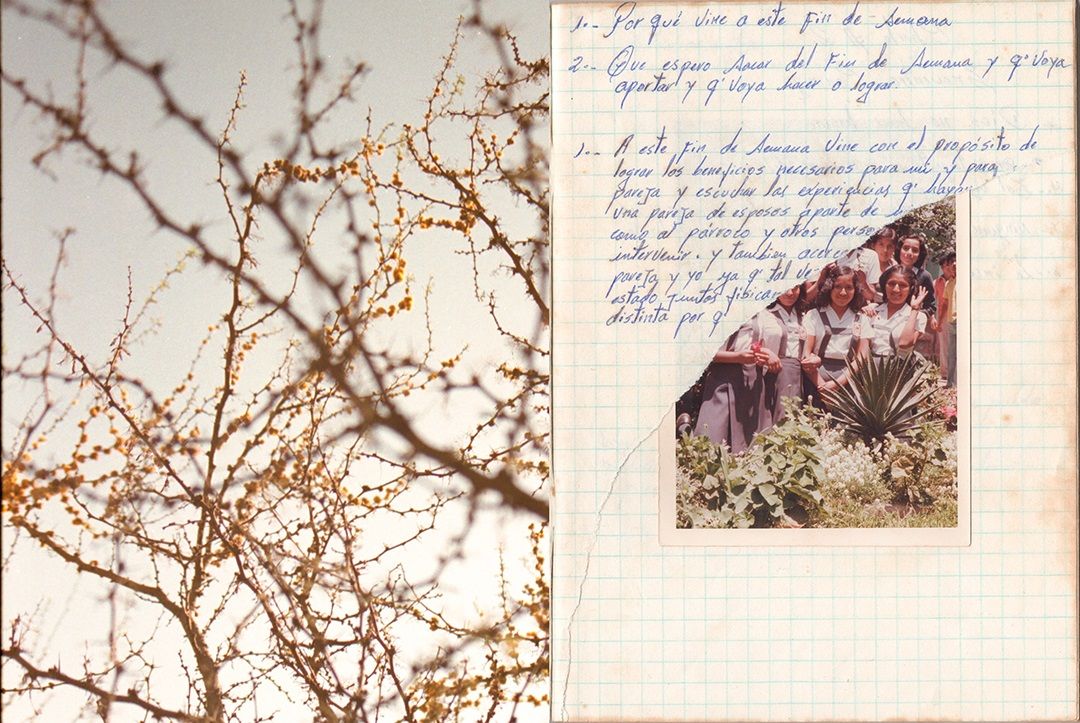 1.- Por qué vine a este Fin de Semana
2.- Que espero sacar del Fin de Semana y q' voy a
aportar y q' voy a hacer o lograr.
1.- A este Fin de Semana Vine con el propósito de
lograr los beneficios necesarios para mi y para
pareja y escuchar las experiencias q' hayan
una pareja de esposos aparte de
como al párroco y otras perso
intervenir. y tambien acerca
pareja y yo ya q' tal ve
estado juntos fisica
distinta por q'